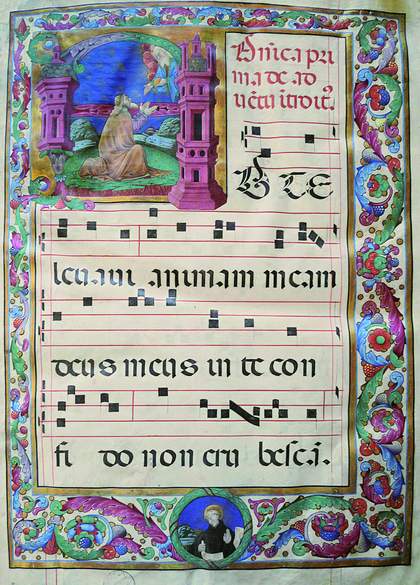 Dñica pri
ma de ad
uētu ītroit9.
AD TE
leuaui animam meam
deus meus in te con
fi do non eru bescā.